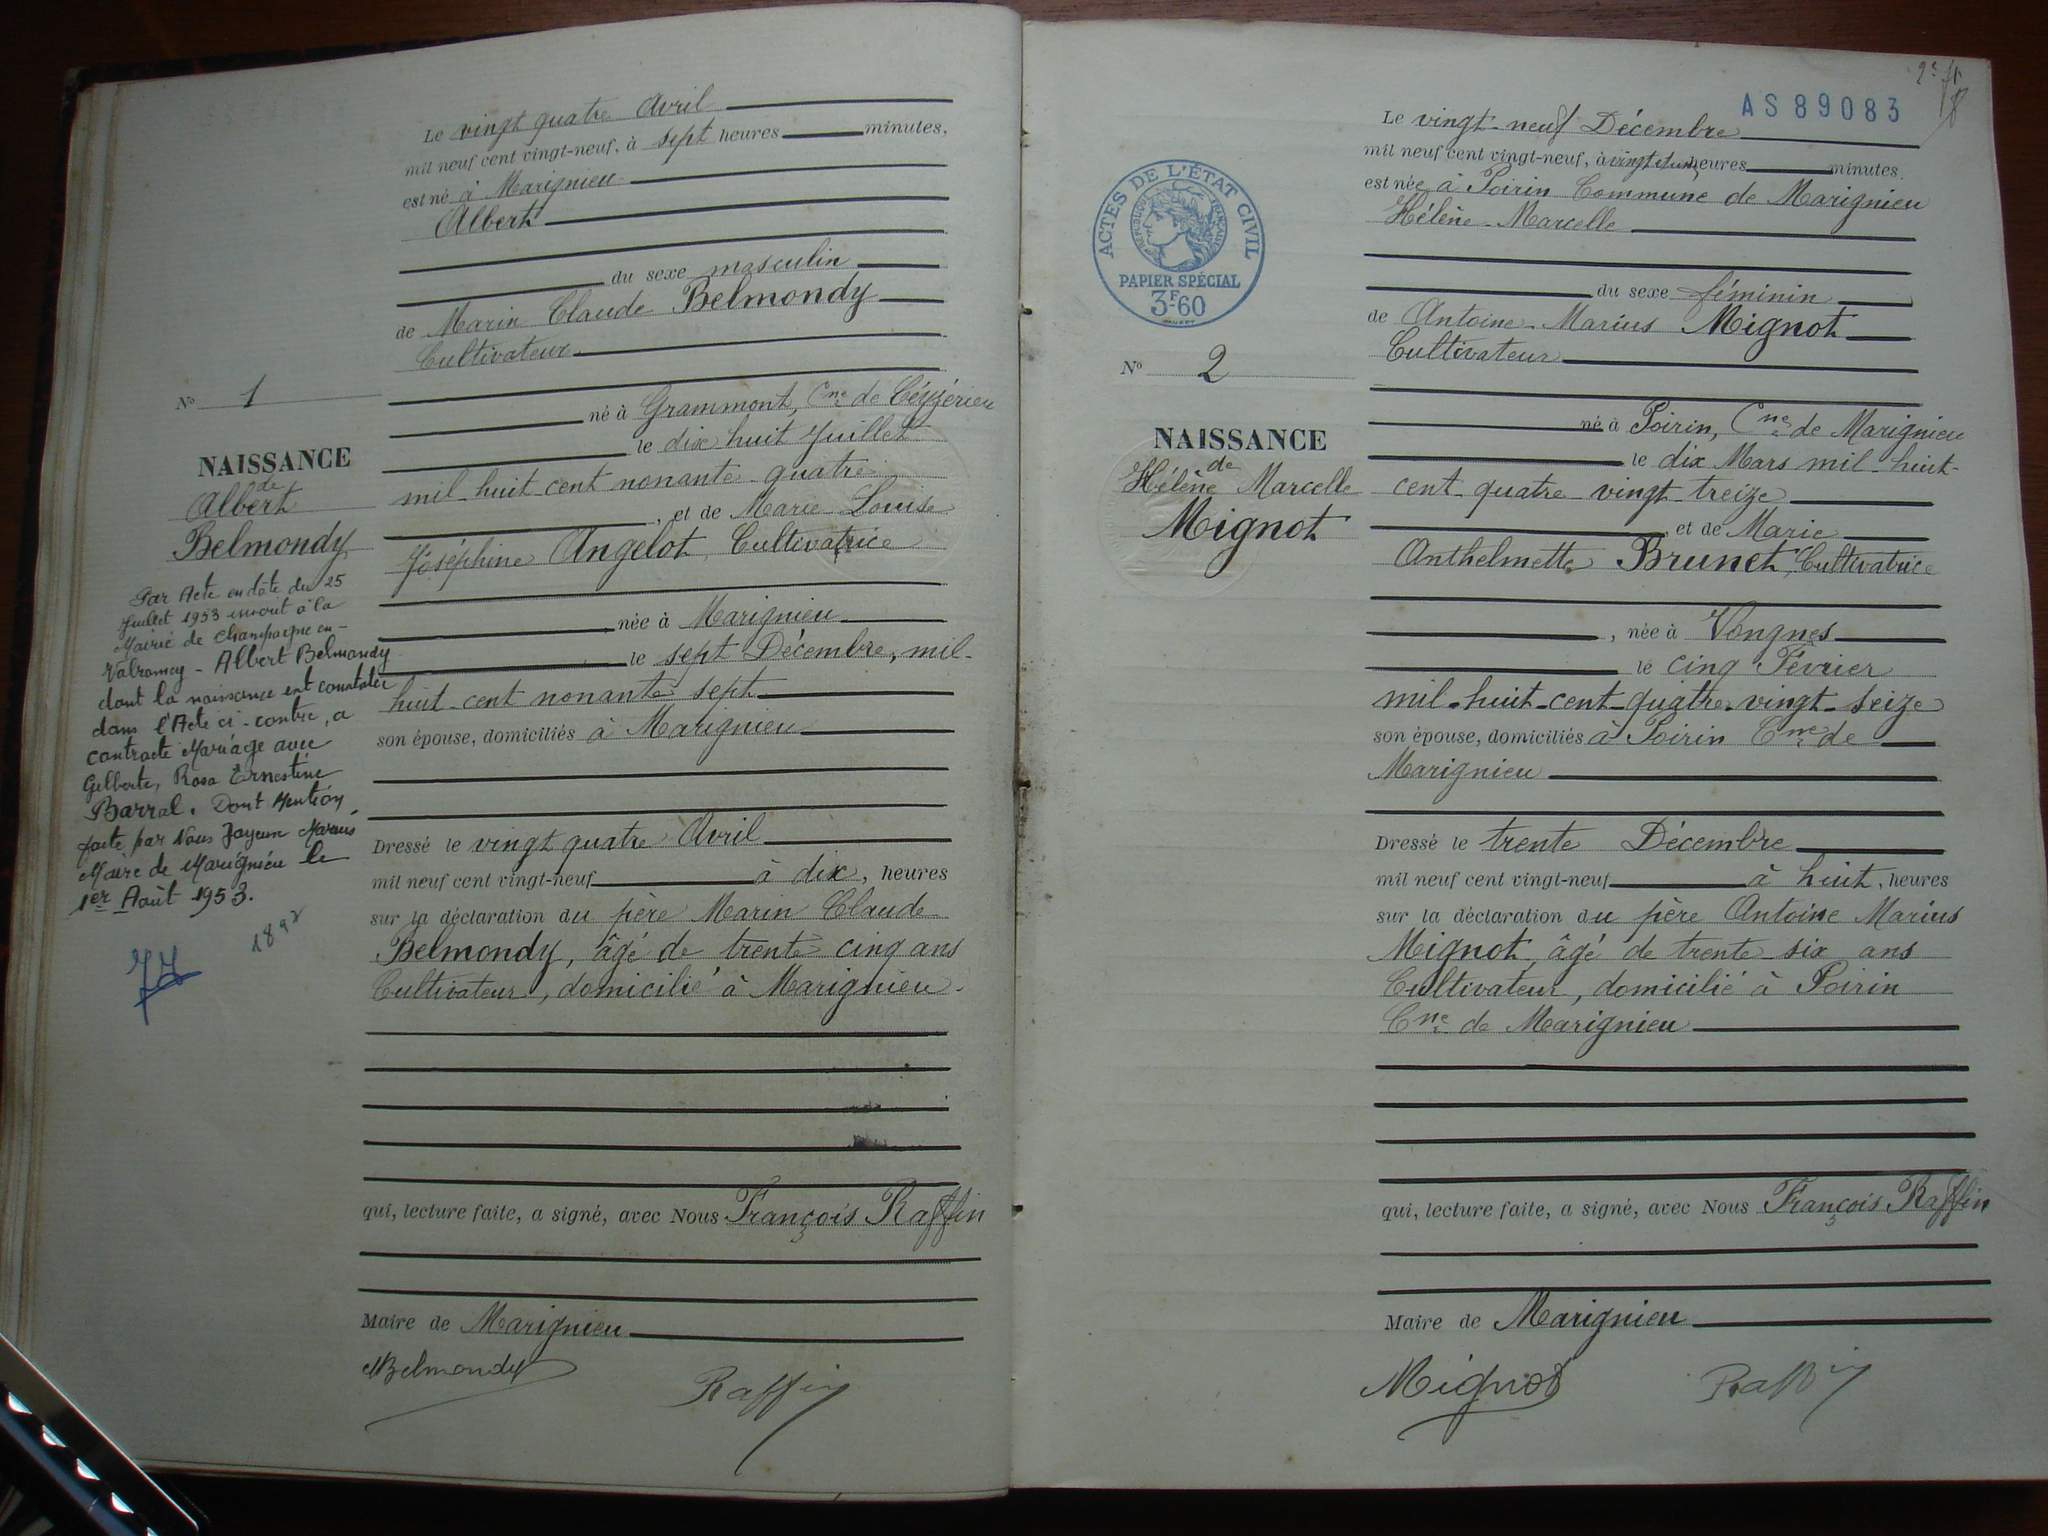 Le vingt quatre Avril
mil neuf cent vingt-neuf, à sept heures minutes,
est né à Marignieu
Albert
du sexe masculin
de Marin Claude Belmondy
Cultivateur
né à Grammont, Cne de Céyzérieu
le dix huit Juillet
mil-huit-cent nonante quatre
, et de Marie Louise
Joséphine Angelot, Cultivatrice
née à Marignieu
le sept Décembre, mil-
huit-cent nonante sept
son épouse, domiciliés à Marignieu
Dressé le vingt quatre Avril
mil neuf cent vingt-neuf à dix, heures
sur la déclaration du père Marin Claude
Belmondy, âgé de trente cinq ans
Cultivateur, domicilié à Marignieu.
qui, lecture faite, a signé, avec Nous François Raffin
Maire de Marignieu
Belmondy Raffin
No 1
NAISSANCE
de
Albert
Belmondy
Par Acte en date du 25
Juillet 1953 inscrit à la
Mairie de Champagne en-
Valromey - Albert Belmondy
dont la naissance est constatée
dans l'Acte ci-contre, a
contracté Mariage avec
Gilberte, Rosa Ernestine
Barral. Dont Mention
faite par Nous Marius
Maire de Marignieu le
1er Août 1953.
AS89083
Le vingt-neuf Décembre
mil neuf cent vingt-neuf, à vingt et une heures minutes.
est née à Poirin Commune de Marignieu
Hélène-Marcelle
du sexe féminin
de Antoine-Marius Mignot
Cultivateur
né à Poirin, Cne de Marignieu
le dix Mars mil-huit-
cent-quatre-vingt-treize
et de Marie
Anthelmette Brunet, Cultivatrice
, née à Vongnes
le cinq Février
mil-huit-cent-quatre-vingt-seize
son épouse, domiciliés à Poirin Cne de
Marignieu
Dressé le trente Décembre
mil neuf cent vingt-neuf à huit, heures
sur la déclaration du père Antoine Marius
Mignot, âgé de trente six ans
Cultivateur, domicilié à Poirin
Cne de Marignieu
qui, lecture faite, a signé, avec Nous François Raffin
Maire de Marignieu
Mignot Raffin
ACTES DE L'ÉTAT CIVIL
RÉPUBLIQUE FRANÇAISE
PAPIER SPÉCIAL
3F-60
No 2
NAISSANCE
de
Hélène Marcelle
Mignot